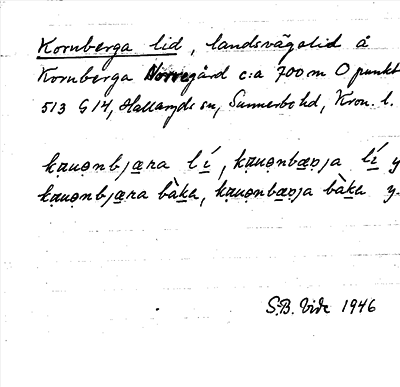 Kornberga lid, landsvägslid å
Kornberga Norregård c:a 700 m O punkt
513 G 14, Hallaryds sn, Sunnerbo hd, Kron. l.
kạuọnbja̲ra lí̲, kạuọnbæ̲ɒja lí̲ y
kạuọnbja̲ra bàk̲a, kạuọnbæ̲ɒja bàk̲a y.
S.B. Vide 1946